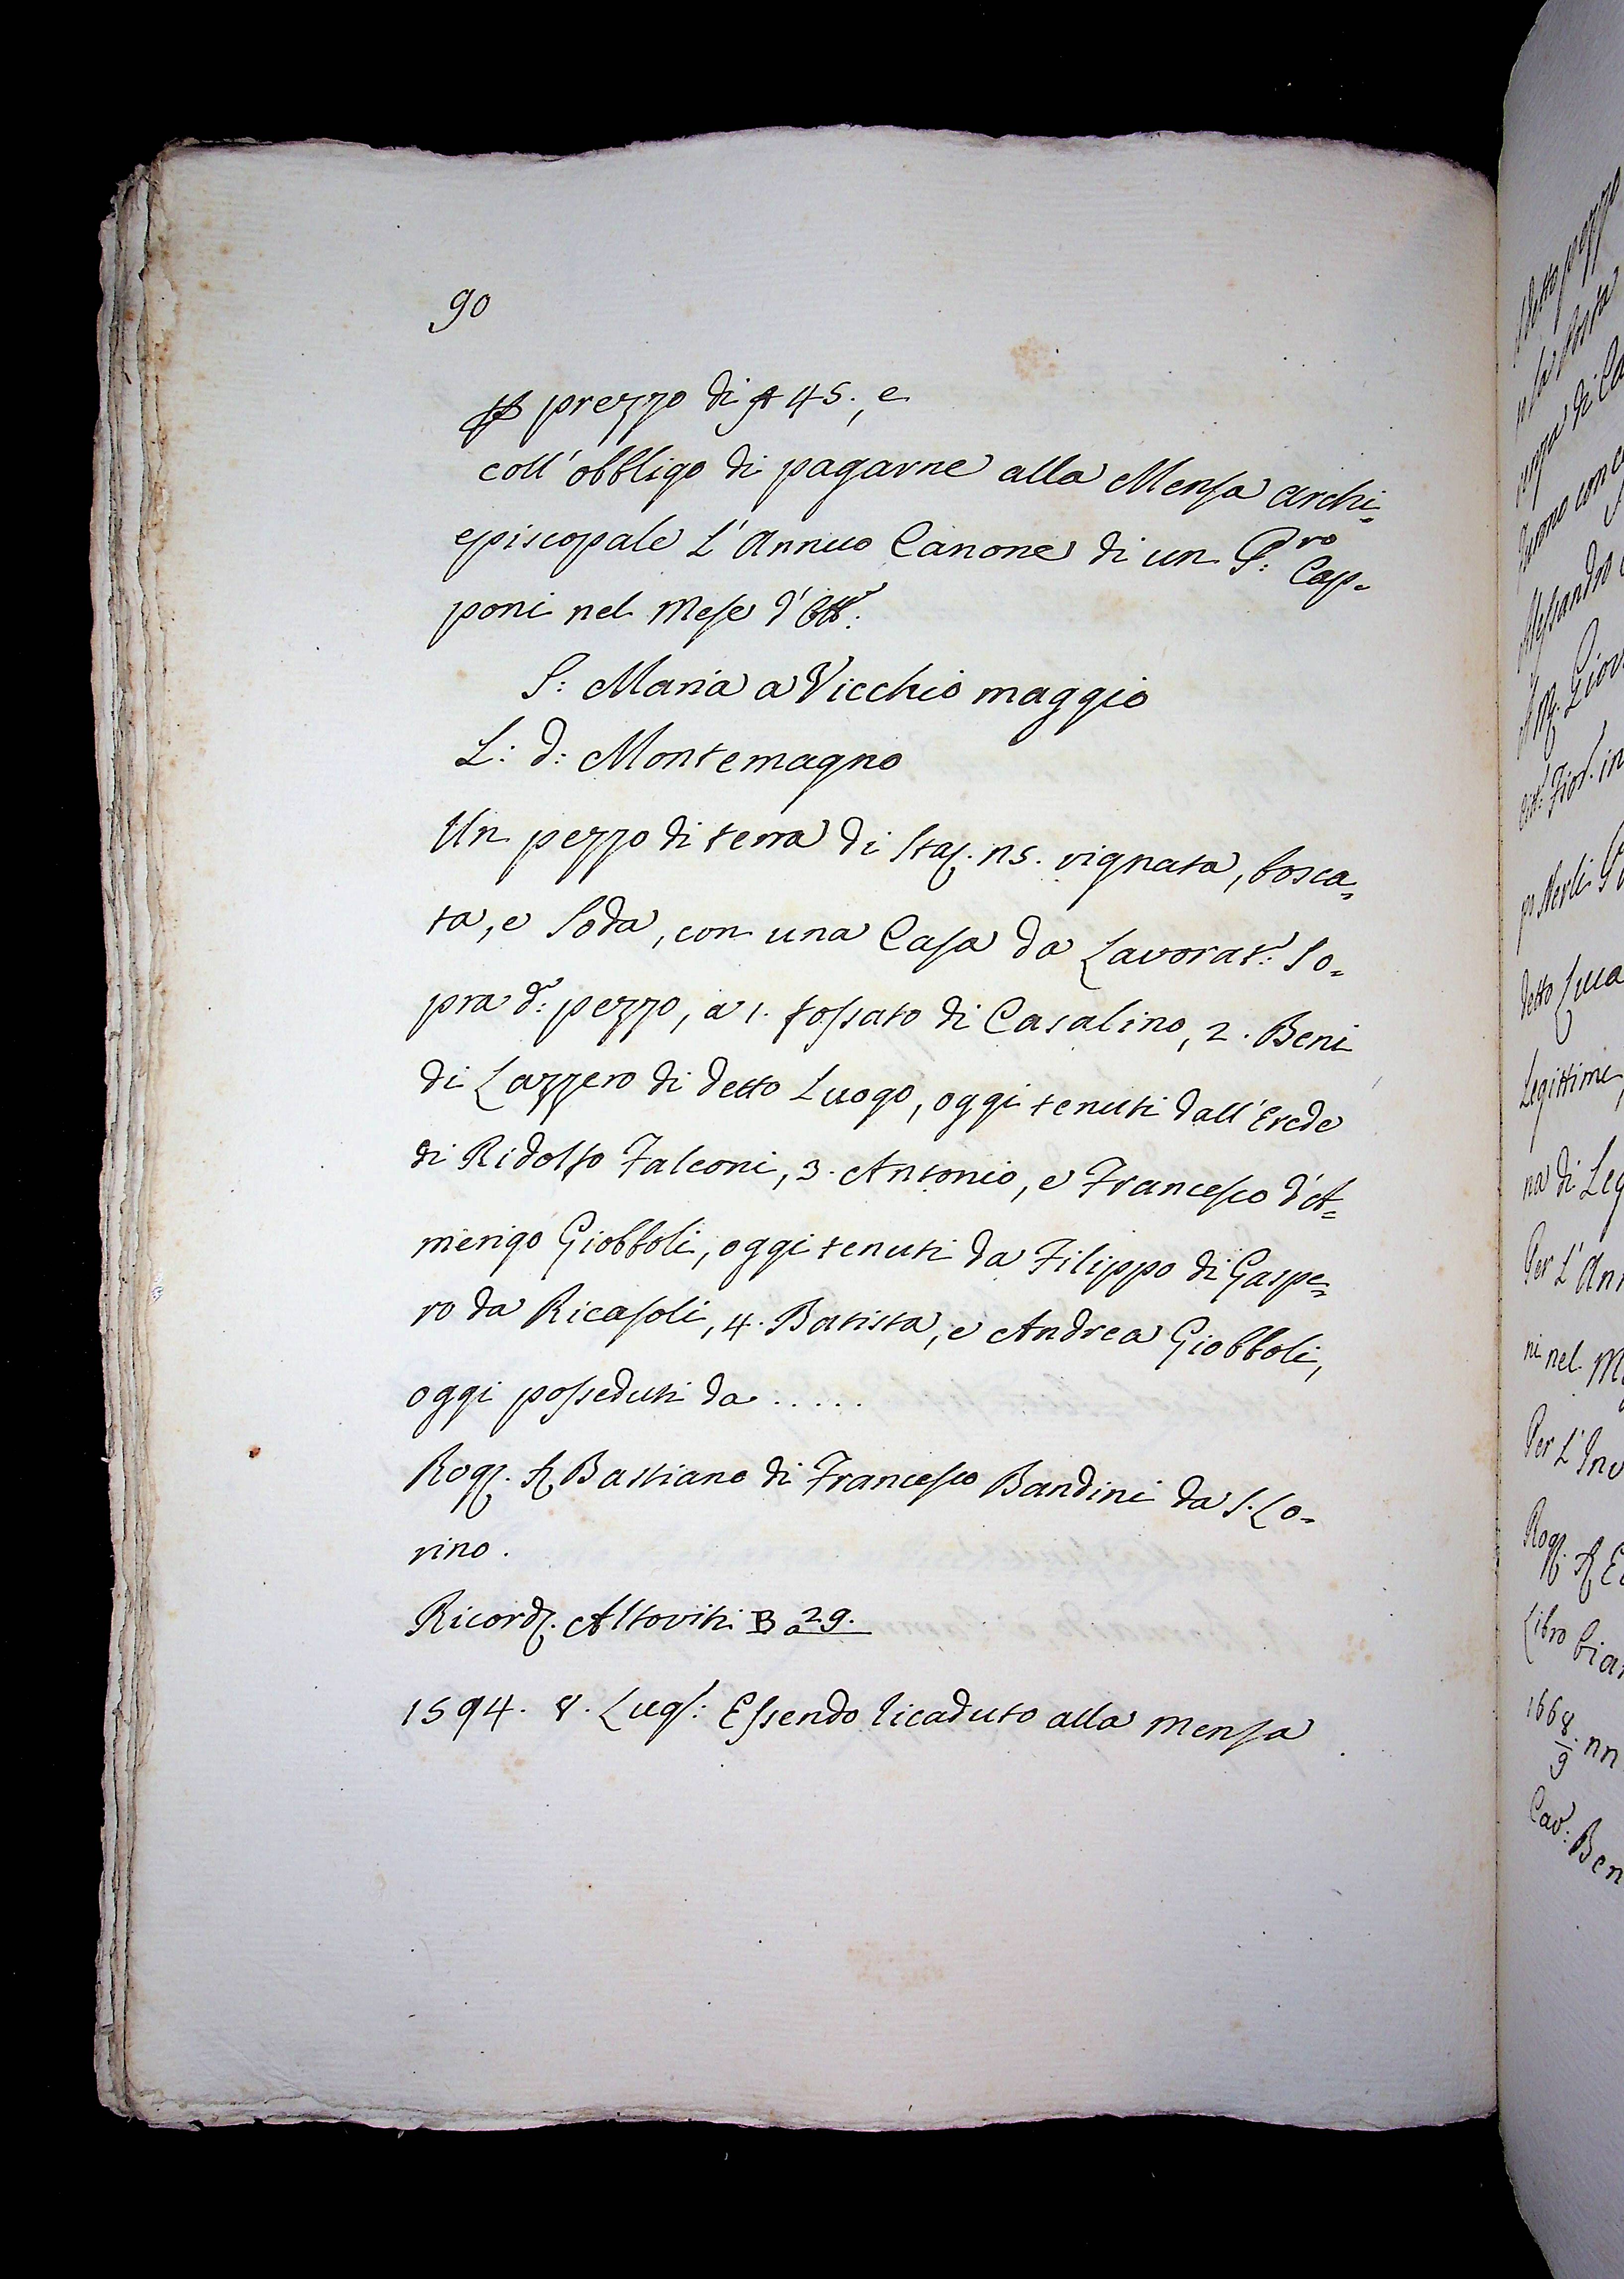 90
prezzo di 45., e
coll'obbligo di pagarne alla Mensa archi=
episcopale L'Annuo Canone di un P:ro Cap=
poni nel Mese d'
S: Maria a Vicchio maggio
L: d: Montemagno
Un pezzo di terra di staj. ns. vignata, bosca=
ta, e Soda, con una Casa da Lavorat:r So=
pra d:o pezzo, a 1. fossato di Casalino, 2. Beni
di Lazzero di detto Luogo, oggi tenuti dall'Erede
di Ridolfo Falconi, 3. Antonio, e Francesco d'A=
merigo Giobboli, oggi tenuti da Filippo di Gaspe=
ro da Ricasoli, 4. Batista, e Andrea Giobboli,
oggi posseduti da .....
Rog. Bastiano di Francesco Bandini da S. Lo=
rino.
Ricord. Altoviti B a 29.
1594. 8. Lugl: Essendo licaduto alla mensa
detto pezzo
Alessandro
detto Luca
Legittime
na di Leg
Per L'Ann
ni nel M
Per L'Inv
Rog.
Libro bian
1668/9. nn
Cav: Ben